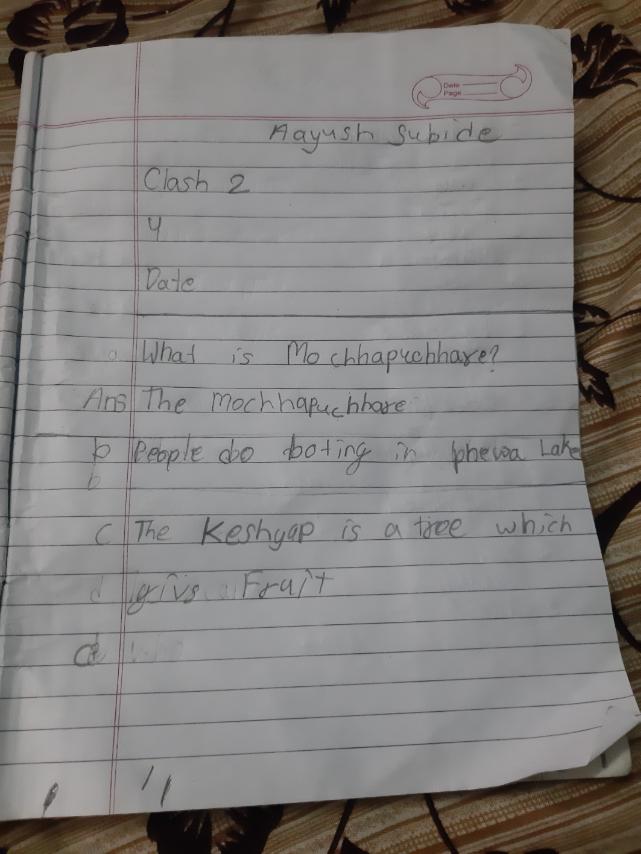 Date
Page
Aayush Subide
Clash 2
4
Date
a What is Mochhapuchhare?
Ans The mochhapuchhare
b People do boting in phewa Lake
b
c The Keshyap is a tree which
d givs a Fruit
d